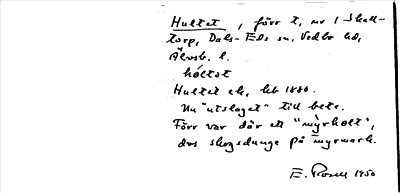 Hultet, förr t. nr 1 Skall-
torp, Dals-Eds sn, Vedbo hd,
Älvsb. l.
hó̀ltət
Hultet ek, kb 1880.
Nu "utslaget" till bete.
Förr var där ett "myrholt",
dvs skogsdunge på myrmark.
E. Rosell 1950